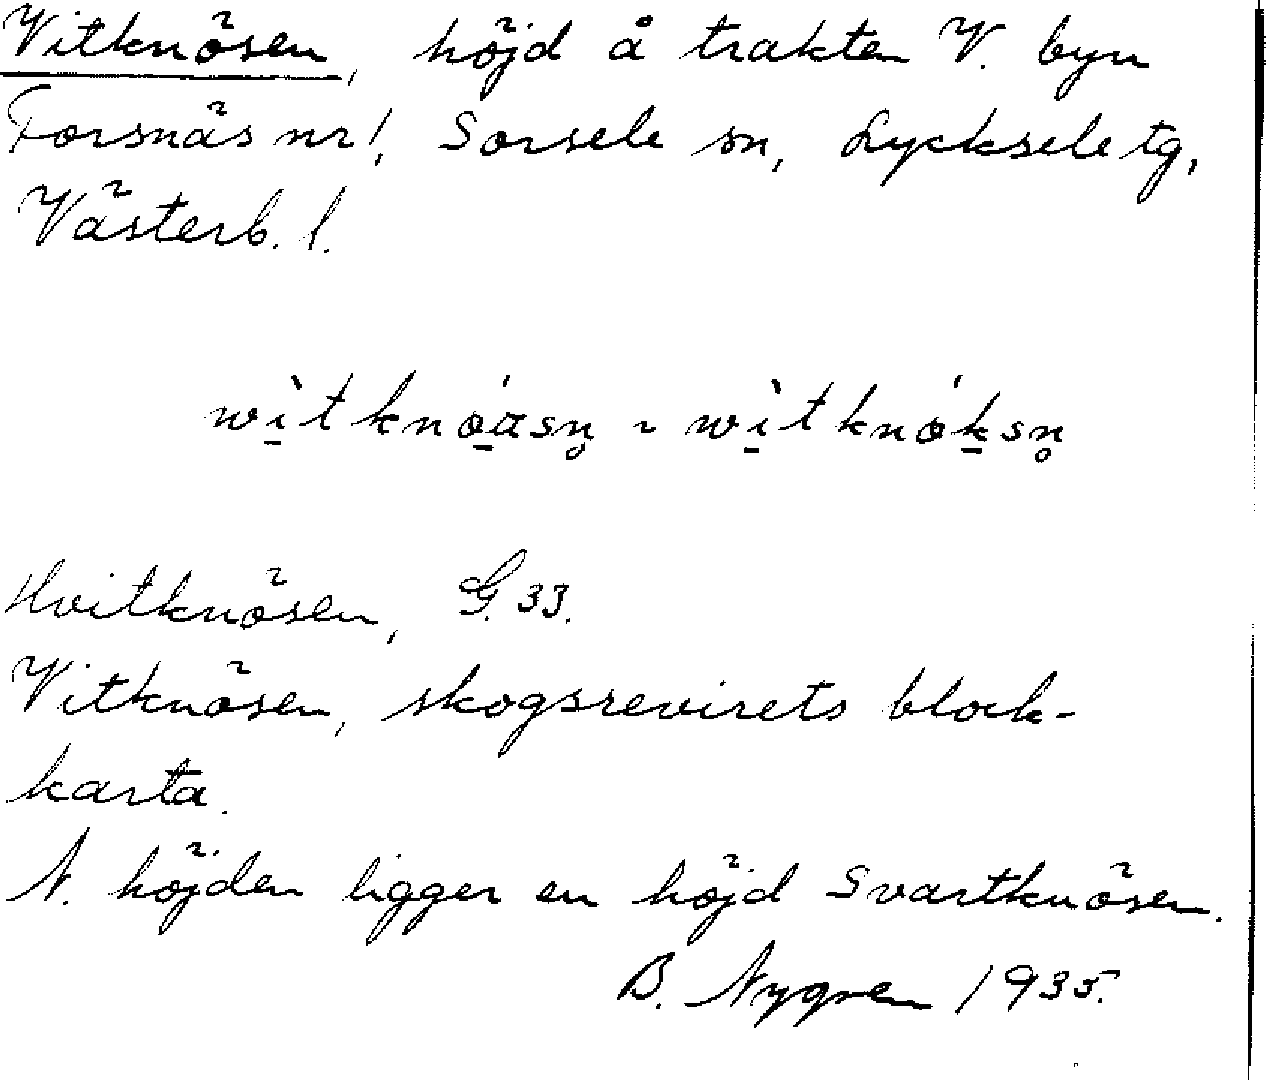 Vitknösen, höjd å trakten V. byn
Forsnäs nr 1, Sorsele sn, Lycksele tg,
Västerb. l.
Hvitknösen, G. 33.
Vitknösen, skogsrevirets block-
karta.
N. höjden ligger en höjd Svartknösen.
B. Nygren 1935.